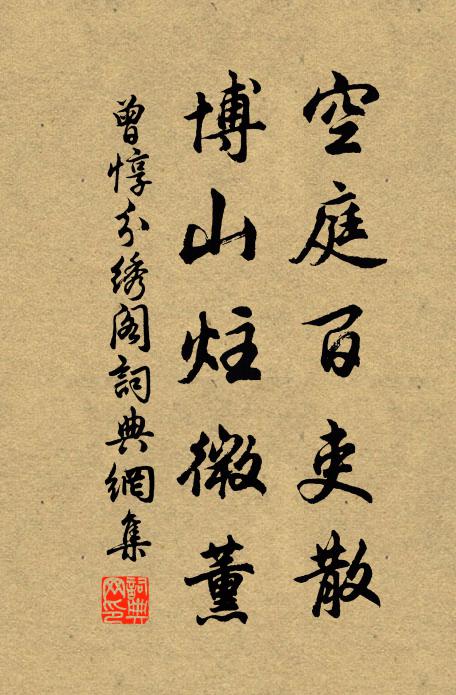 空庭百吏散
博山炷微薰
曾惇分绣阁詞典網集
詞典网印